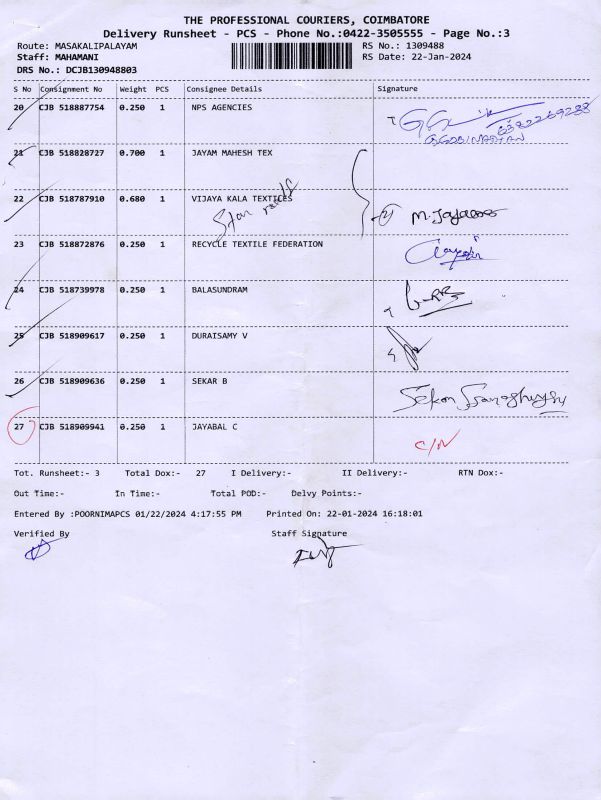 THE PROFESSIONAL COURIERS, COIMBATORE
Delivery Runsheet - PCS - Phone No.:0422-3505555 - Page No.:3
Route: MASAKALIPALAYAM RS No.: 1309488
Staff: MAHAMANI RS Date: 22-Jan-2024
DRS No.: DCJB130948803
S No Consignment No Weight PCS Consignee Details Signature
20 CJB 518887754 0.250 1 NPS AGENCIES
21 CJB 518828727 0.700 1 JAYAM MAHESH TEX
22 CJB 518787910 0.680 1 VIJAYA KALA TEXTICES
23 CJB 518872876 0.250 1 RECYCLE TEXTILE FEDERATION
24 CJB 518739978 0.250 1 BALASUNDRAM
25 CJB 518909617 0.250 1 DURAISAMY V
26 CJB 518909636 0.250 1 SEKAR B
27 CJB 518909941 0.250 1 JAYABAL C C/N
Tot. Runsheet:- 3 Total Dox:- 27 I Delivery:- II Delivery:- RTN Dox:-
Out Time:- In Time:- Total POD:- Delvy Points:-
Entered By :POORNIMAPCS 01/22/2024 4:17:55 PM Printed On: 22-01-2024 16:18:01
Verified By Staff Signature